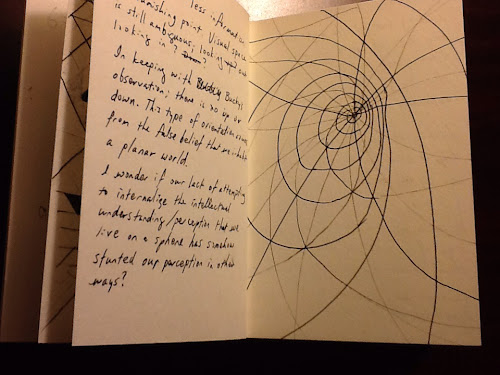 less information
vanishing point. Visual space
is still ambiguous; looking out
looking in?
In keeping with Bucky
observation; there is no up or
down. This type of orientation comes
from the false belief that we inhabit
a planar world.
I wonder if our lack of attempting
to internalize the intellectual
understanding/perception that we
live on a sphere has somehow
stunted our perception in other
ways?